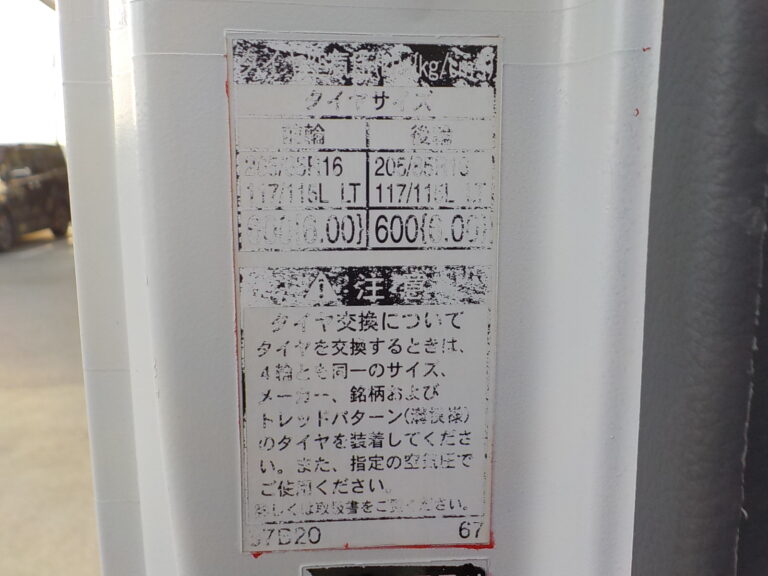 タイヤサイズ
前輪 後輪
205/85R16 205/85R16
117/115L LT 117/115L LT
600{6.00} 600{6.00}
注意
タイヤ交換について
タイヤを交換するときは、
4輪とも同一のサイズ、
メーカー、銘柄および
トレッドパターン(溝模様)
のタイヤを装着してくださ
い。また、指定の空気圧で
ご使用ください。
詳しくは取扱書をご覧ください。
67